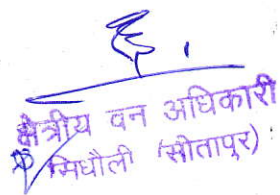 क्षेत्रीय वन अधिकारी
सिधौली (सीतापुर)